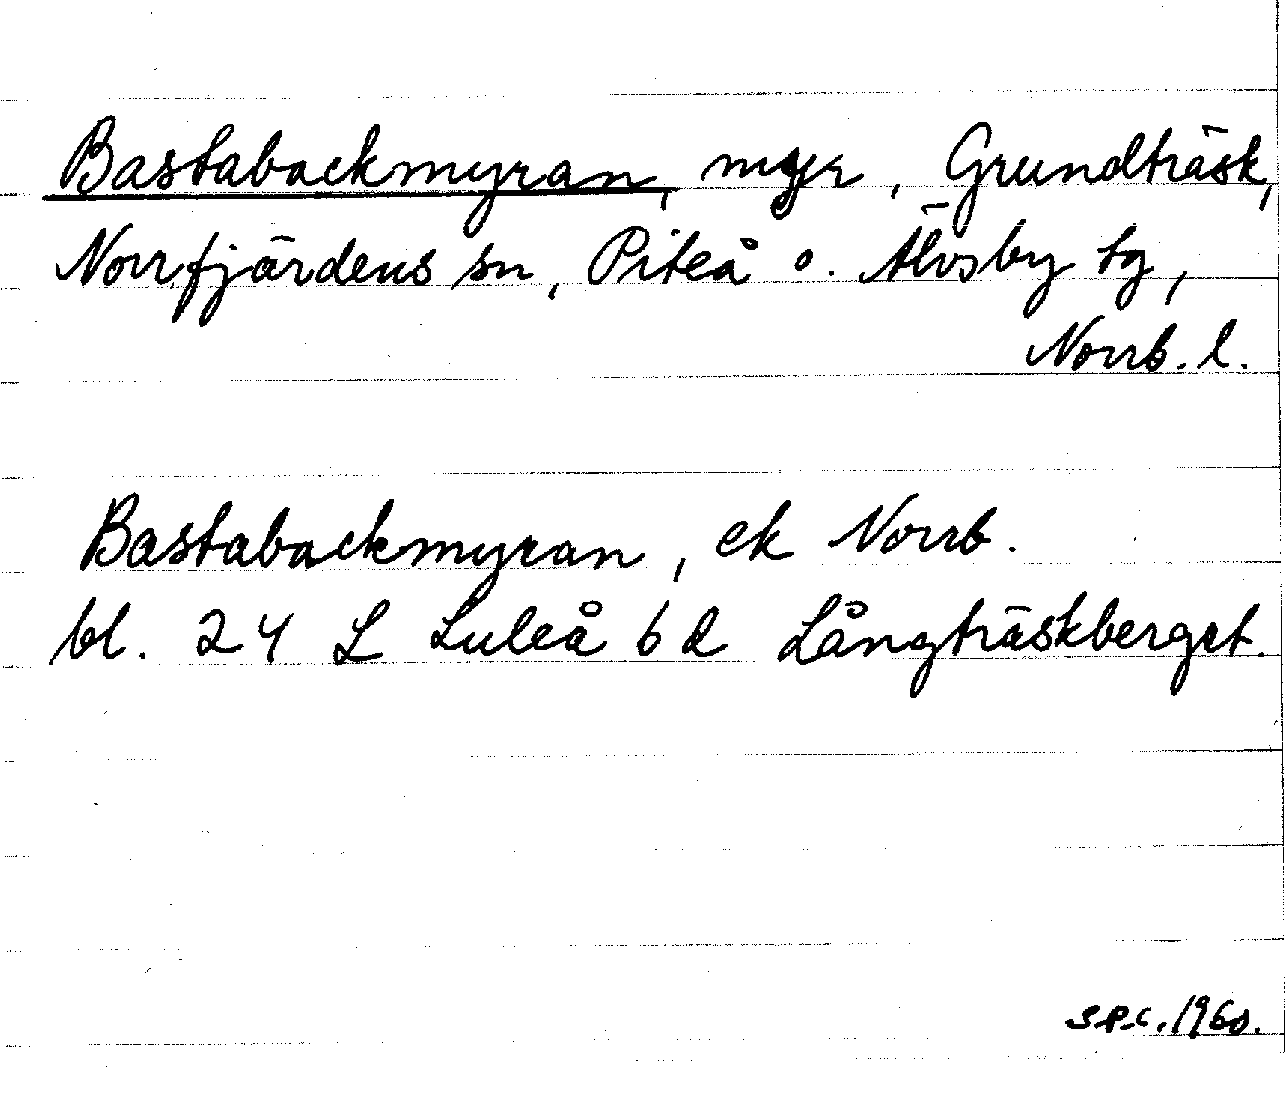 Bastabackmyran, myr, Grundträsk,
Norrfjärdens sn, Piteå o. Älvsby tg,
Norrb. l.
Bastabackmyran, ek Norrb.
bl. 24 L Luleå 6 d Långträskberget.
S.P.C. 1960.